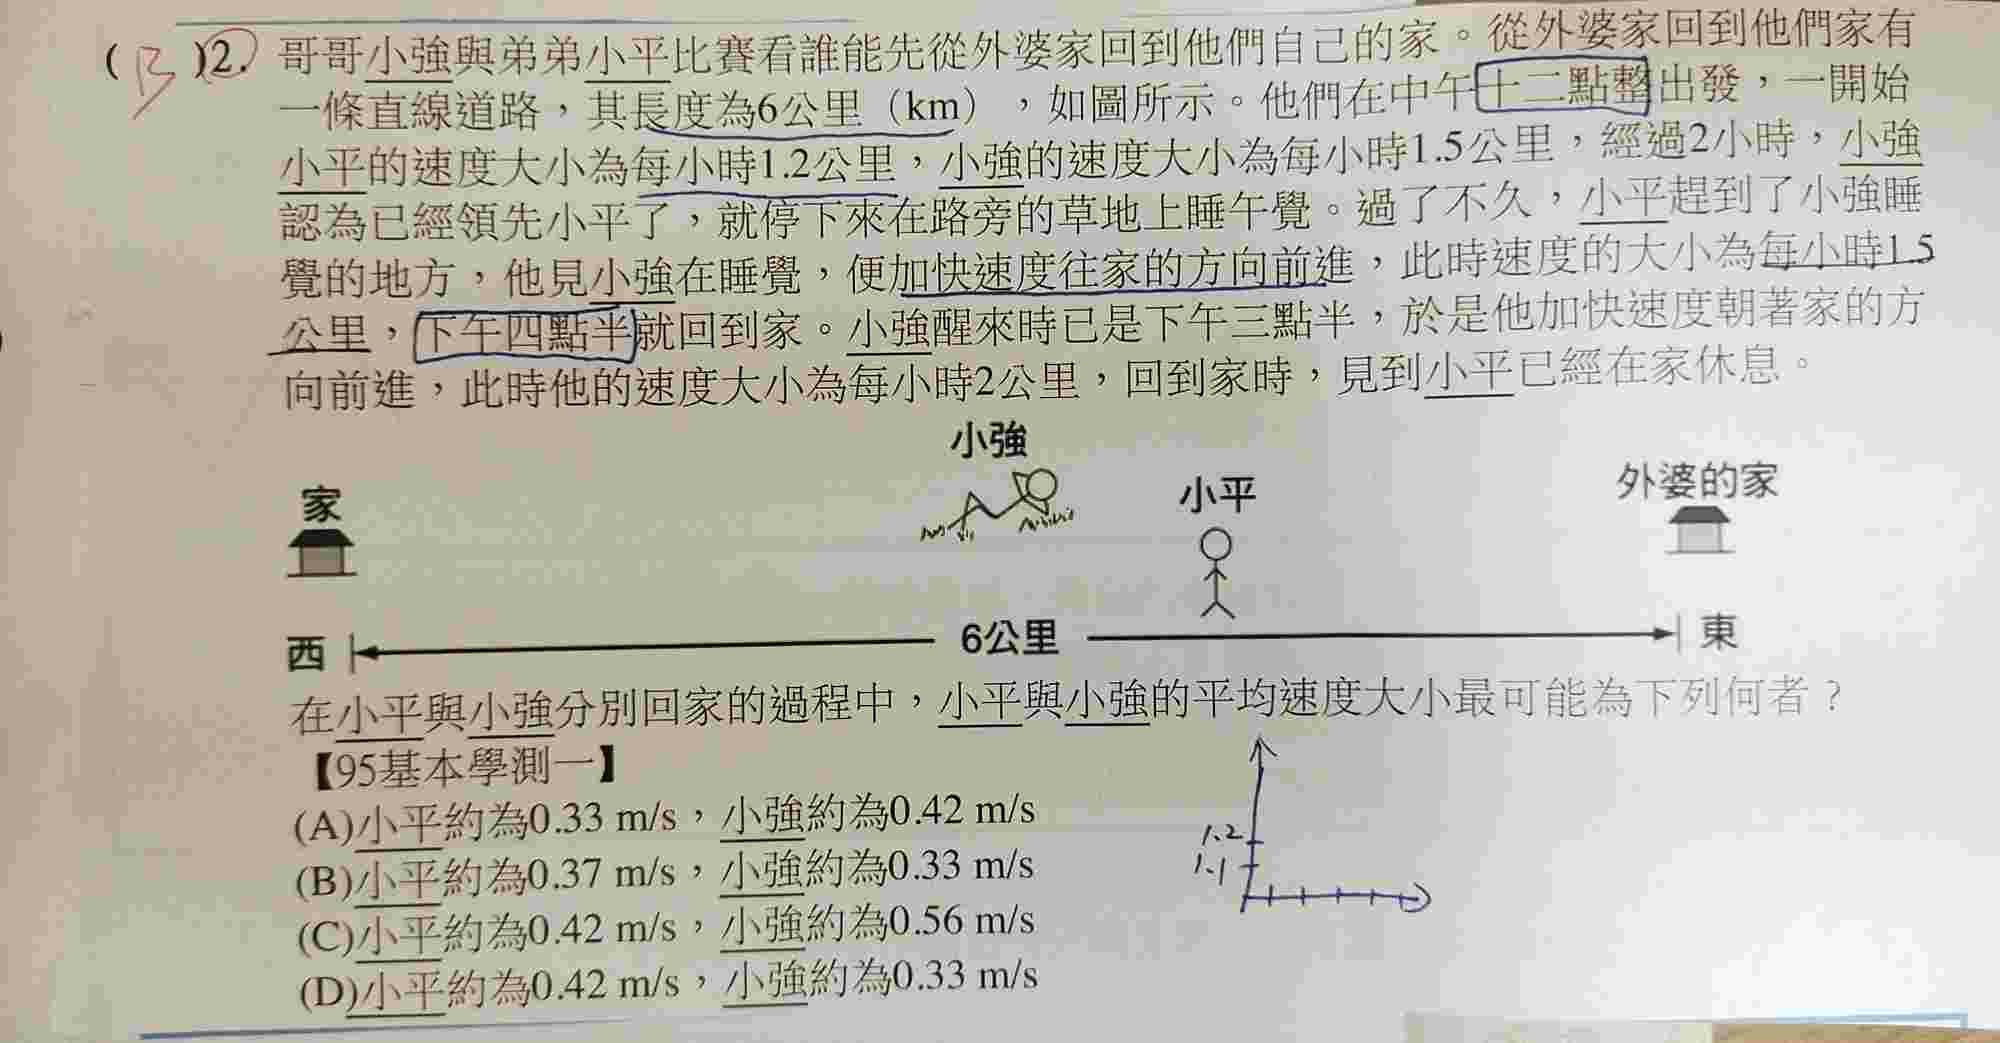 (B)2. 哥哥小強與弟弟小平比賽看誰能先從外婆家回到他們自己的家。從外婆家回到他們家有
一條直線道路，其長度為6公里（km），如圖所示。他們在中午十二點整出發，一開始
小平的速度大小為每小時1.2公里，小強的速度大小為每小時1.5公里，經過2小時，小強
認為已經領先小平了，就停下來在路旁的草地上睡午覺。過了不久，小平趕到了小強睡
覺的地方，他見小強在睡覺，便加快速度往家的方向前進，此時速度的大小為每小時1.5
公里，下午四點半就回到家。小強醒來時已是下午三點半，於是他加快速度朝著家的方
向前進，此時他的速度大小為每小時2公里，回到家時，見到小平已經在家休息。
小強
家
小平
外婆的家
西
6公里
東
在小平與小強分別回家的過程中，小平與小強的平均速度大小最可能為下列何者？
【95基本學測一】
(A)小平約為0.33 m/s，小強約為0.42 m/s
(B)小平約為0.37 m/s，小強約為0.33 m/s
(C)小平約為0.42 m/s，小強約為0.56 m/s
(D)小平約為0.42 m/s，小強約為0.33 m/s
1.2
1.1